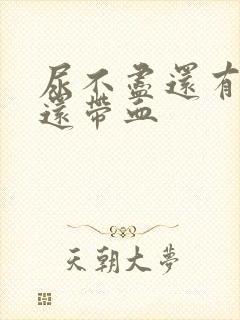 尿不盡還有
還帶血
天朝大夢